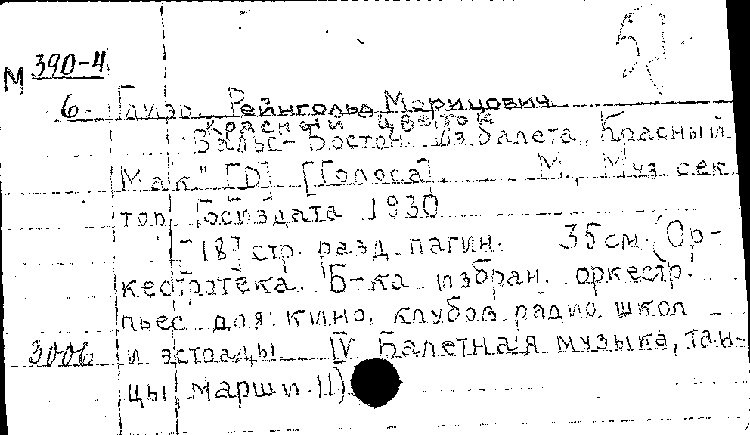 М 390-4
6. Глиэр, Рейнгольд Морицович
Красный цветок
Вальс-Бостон из балета „Красный
Мак" [D] [Голоса]. М., Муз. сек
тор Госиздата 1930
[18] стр. разд. пагин. 35 см. (Ор-
кестротека. Б-ка избран. оркестр.
пьес для кино, клубов, радио, школ
300б. и эстрады IV Балетная музыка, тан-
цы, марши. 11)